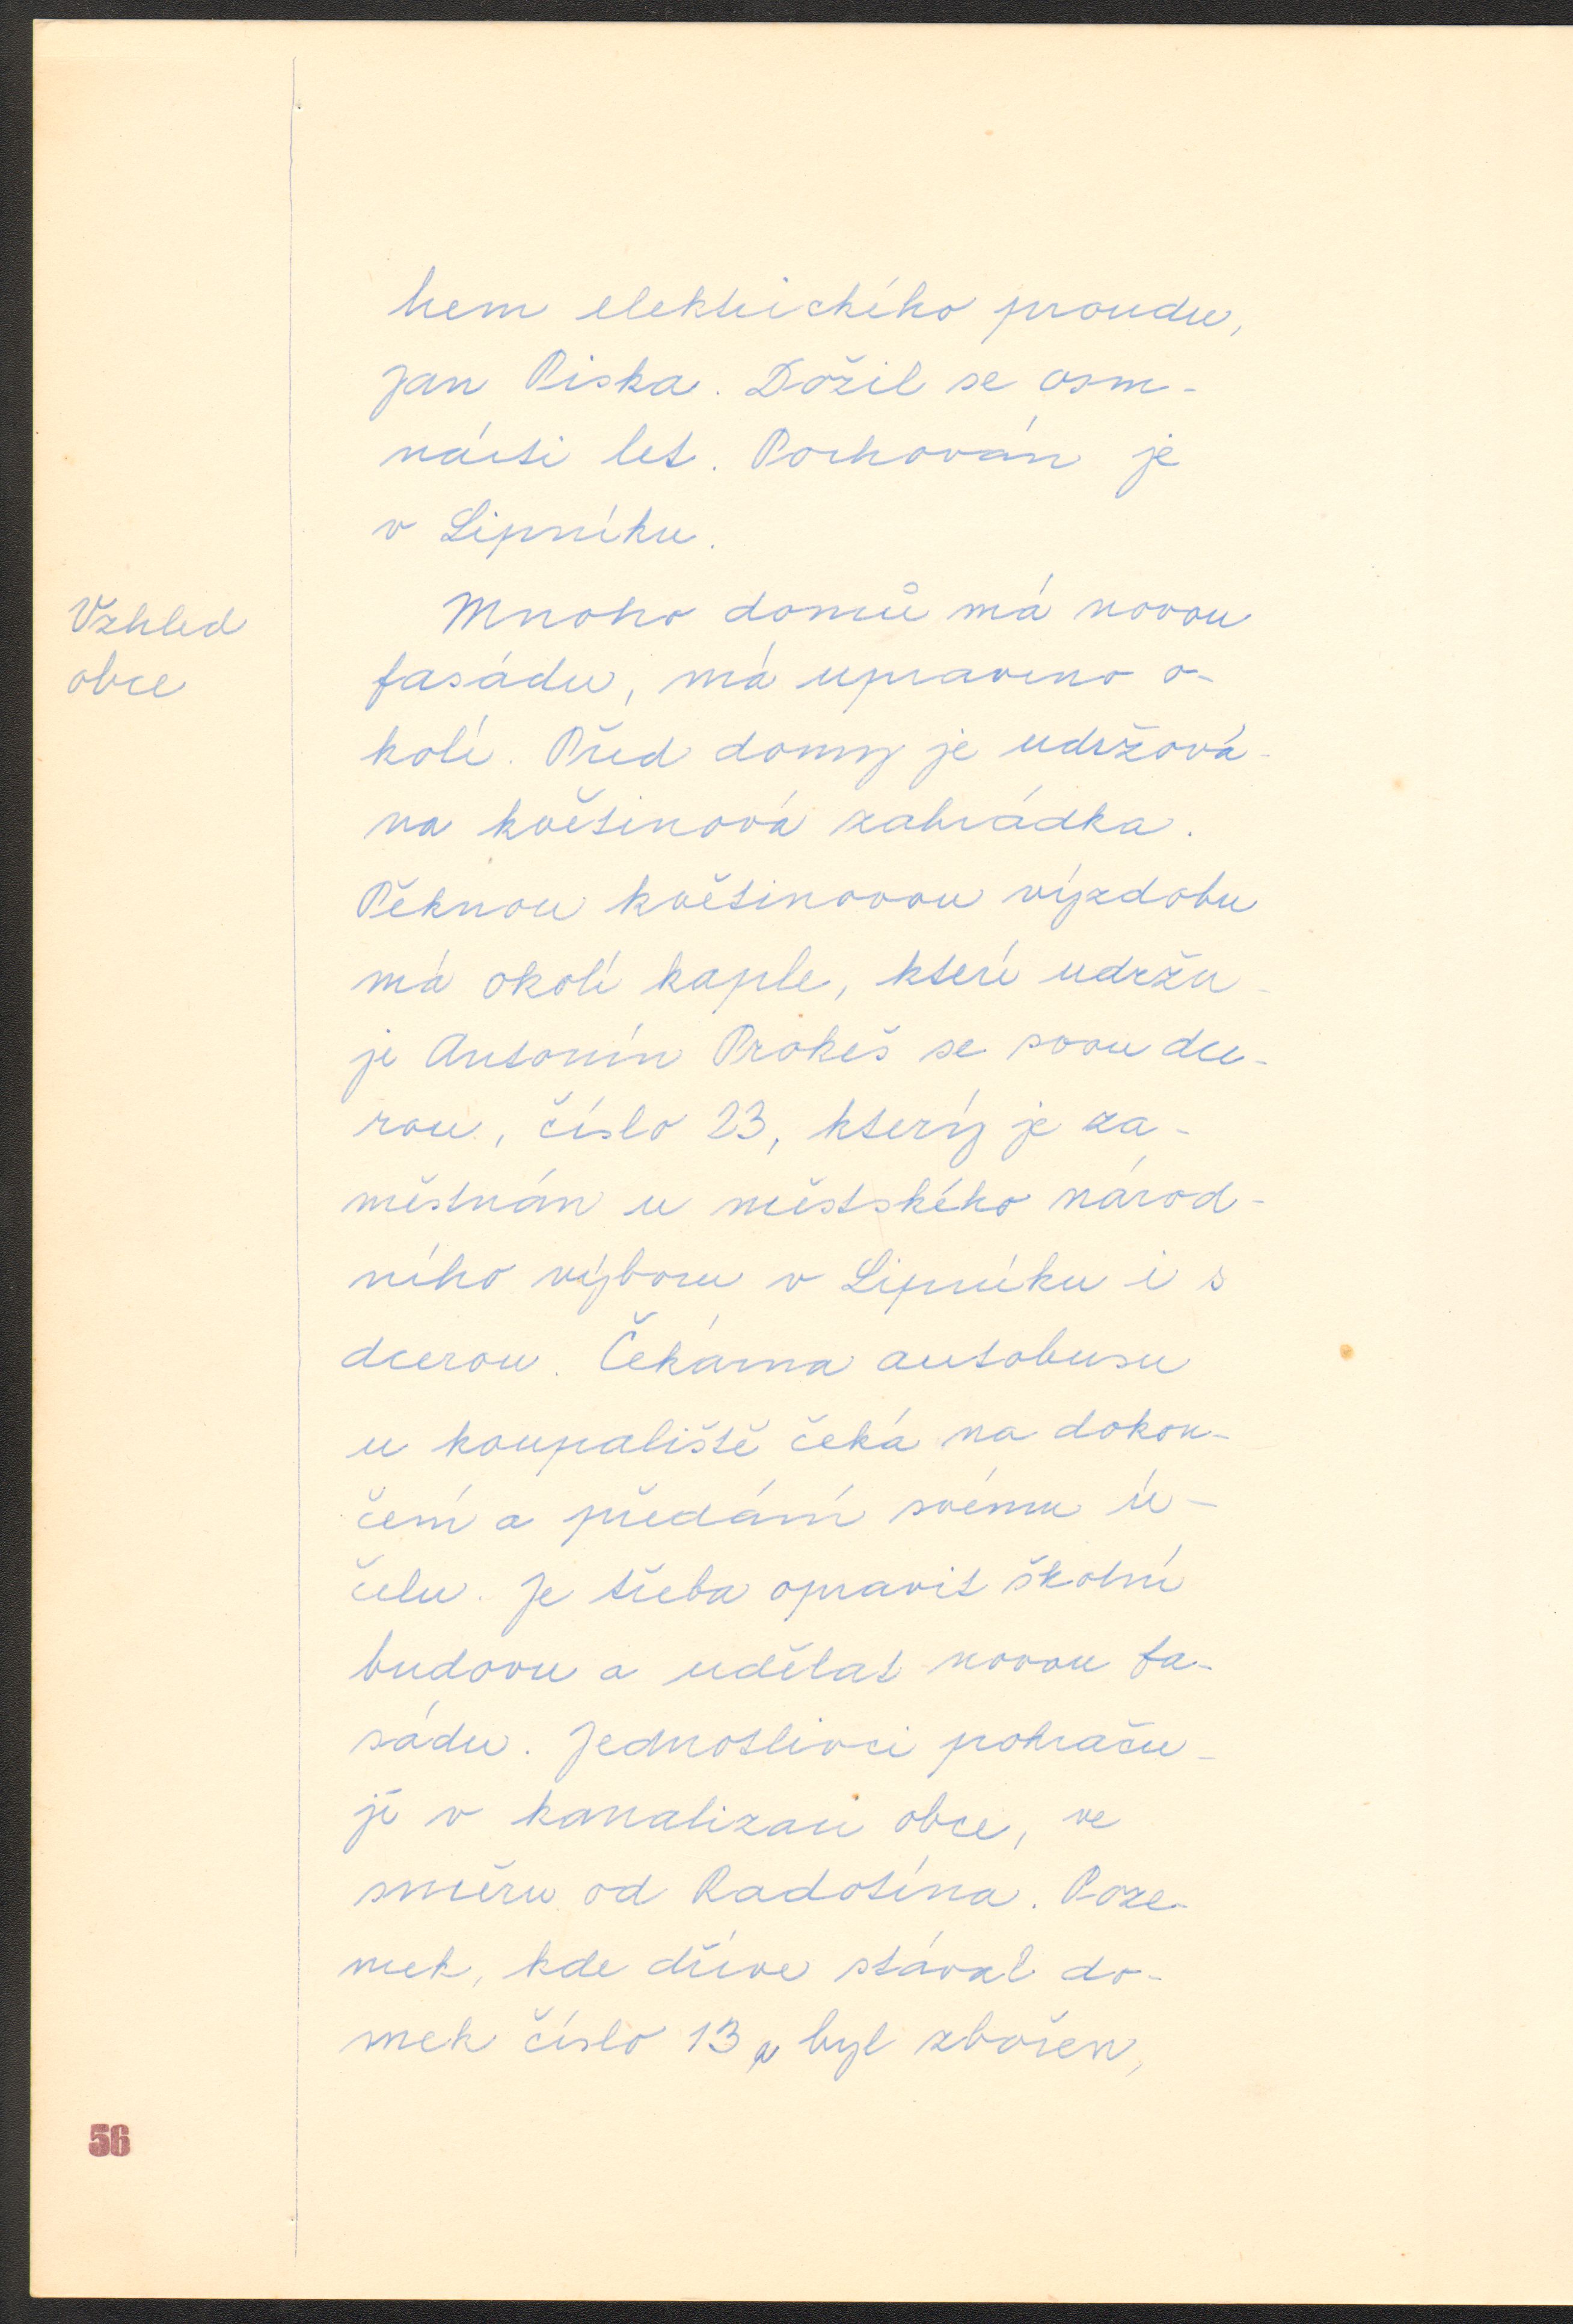 hem elektrického proudu,
Jan Piska. Dožil se osm-
nácti let. Pochován je
v Lipníku.
Vzhled
obce
Mnoho domů má novou
fasádu, má upraveno o-
kolí. Před domy je udržová-
na květinová zahrádka.
Pěknou květinovou výzdobu
má okolí kaple, které udržu-
je Antonín Prokeš se svou dce-
rou, číslo 23, který je za-
městnán u městského národ-
ního výboru v Lipníku i s
dcerou. Čekárna autobusu
u koupaliště čeká na dokon-
čení a předání svému ú-
čelu. Je třeba opravit školní
budovu a udělat novou fa-
sádu. Jednotlivci pokraču-
jí v kanalizaci obce, ve
směru od Radotína. Poze-
mek, kde dříve stával do-
mek číslo 13 a byl zbořen,
56